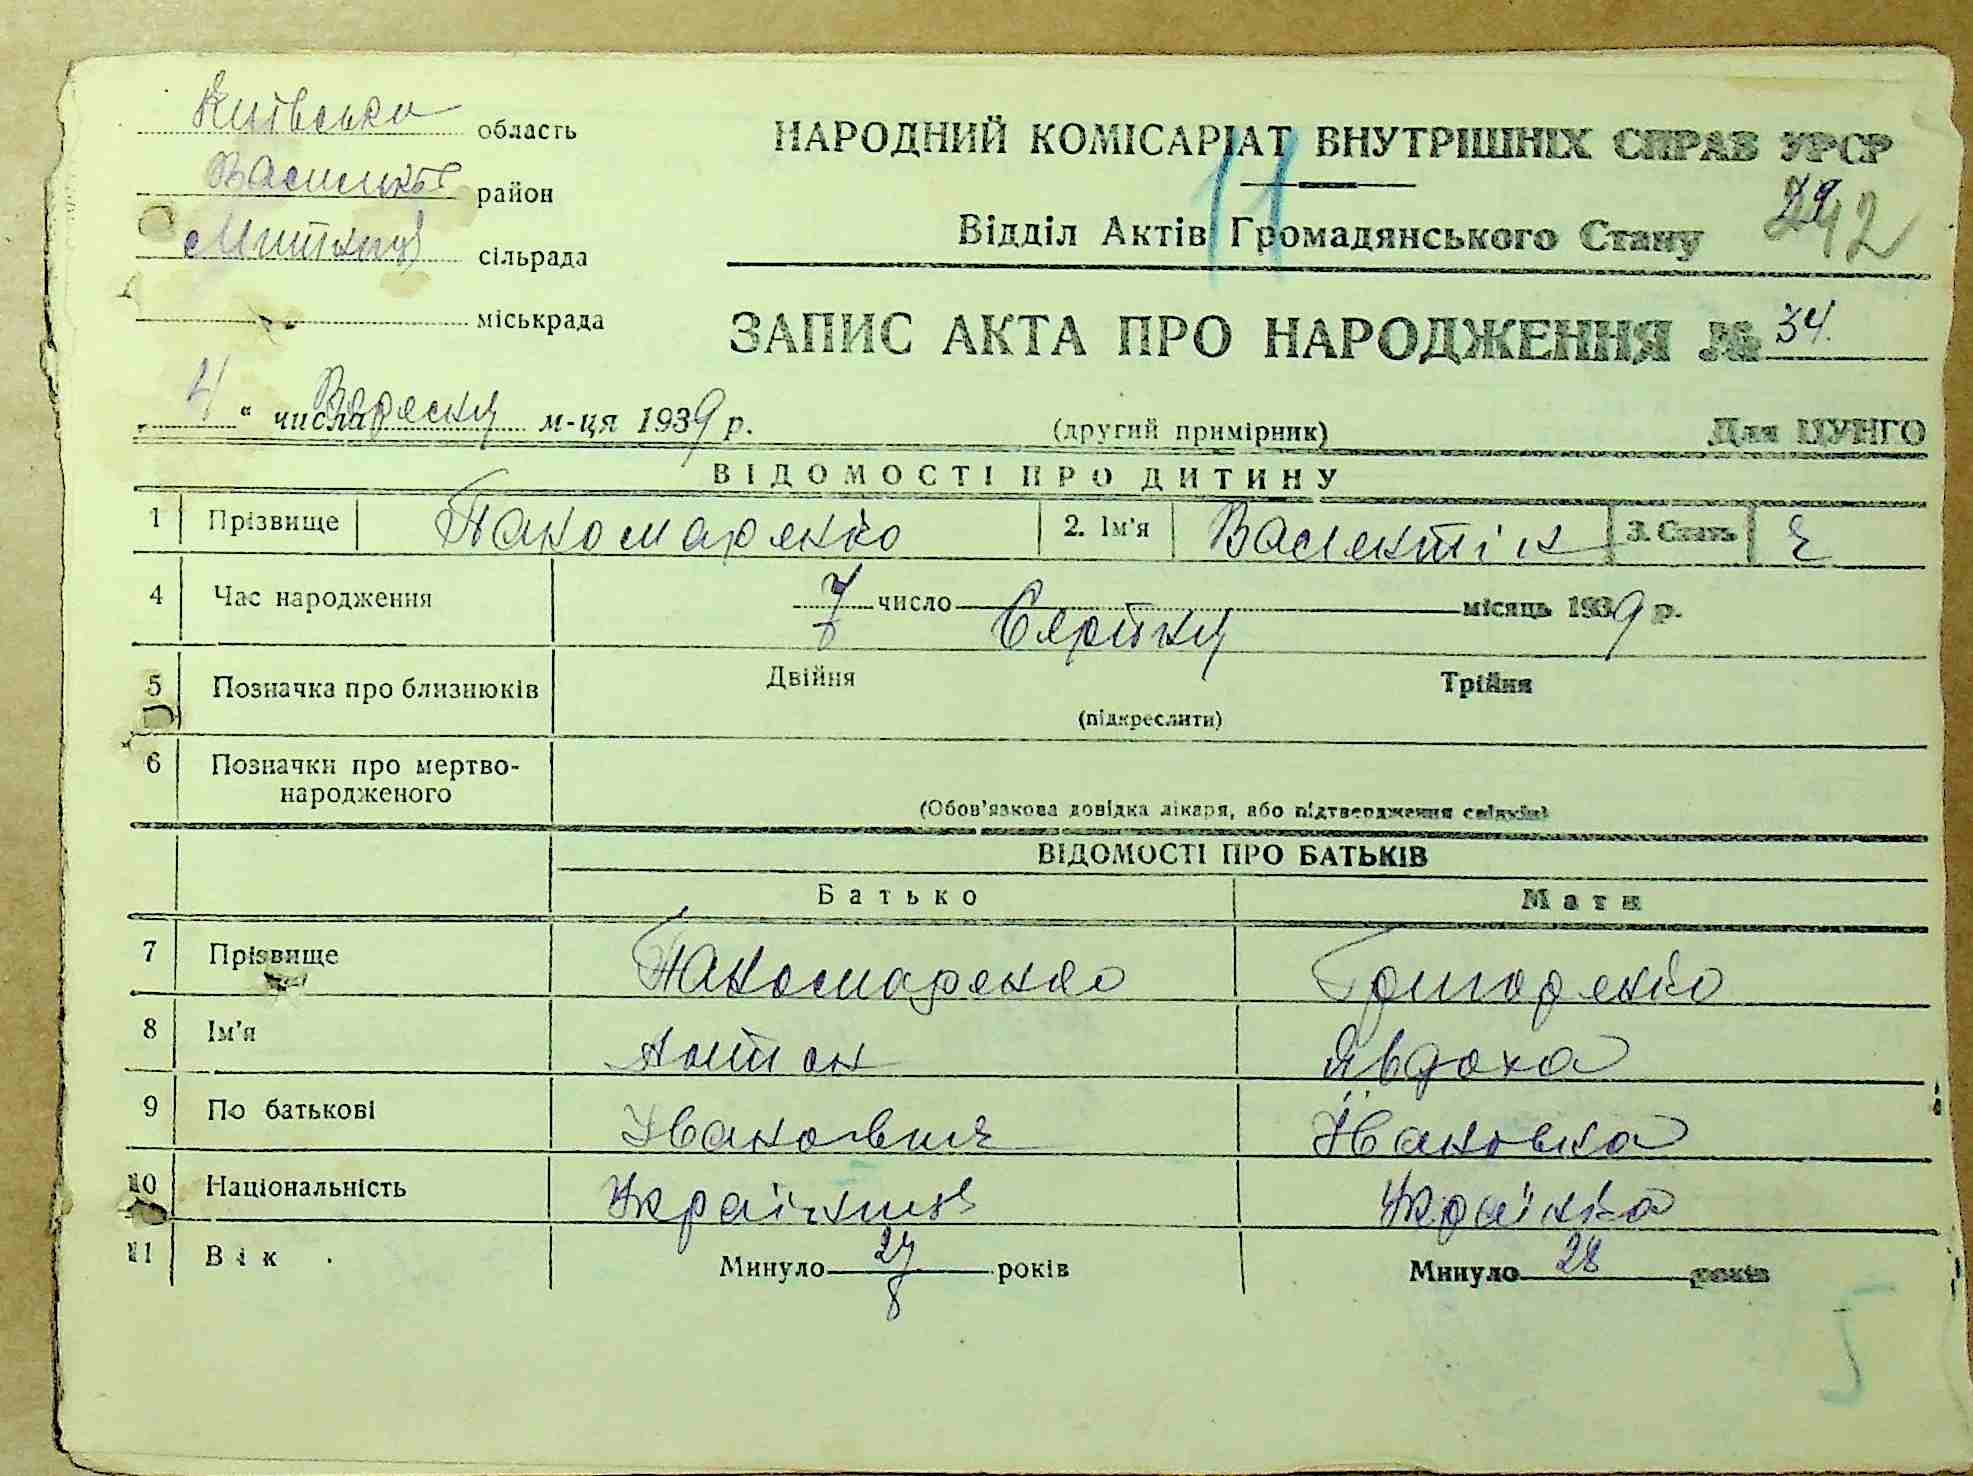 Київська область
район
сільрада
міськрада
НАРОДНИЙ КОМІСАРІАТ ВНУТРІШНІХ СПРАВ УРСР
11
242
Відділ Актів Громадянського Стану
ЗАПИС АКТА ПРО НАРОДЖЕННЯ № 34.
4 " числа Вересня м-ця 1939 р.
(другий примірник)
Для ЦУНГО
ВІДОМОСТІ ПРО ДИТИНУ
1 Прізвище Паномаренко 2. Ім'я Валентін 3. Стать ч
4 Час народження 7 число Серпня місяць 1939 р.
5 Позначка про близнюків Двійня Трійня
(підкреслити)
6 Позначки про мертво-
народженого
(Обов'язкова довідка лікаря, або підтвердження свідків)
ВІДОМОСТІ ПРО БАТЬКІВ
Батько Мати
7 Прізвище Паномаренко Григоренко
8 Ім'я Антон Явдоха
9 По батькові Іванович Івановна
10 Національність Українець Українка
11 Вік Минуло 27 років Минуло 28 років
5